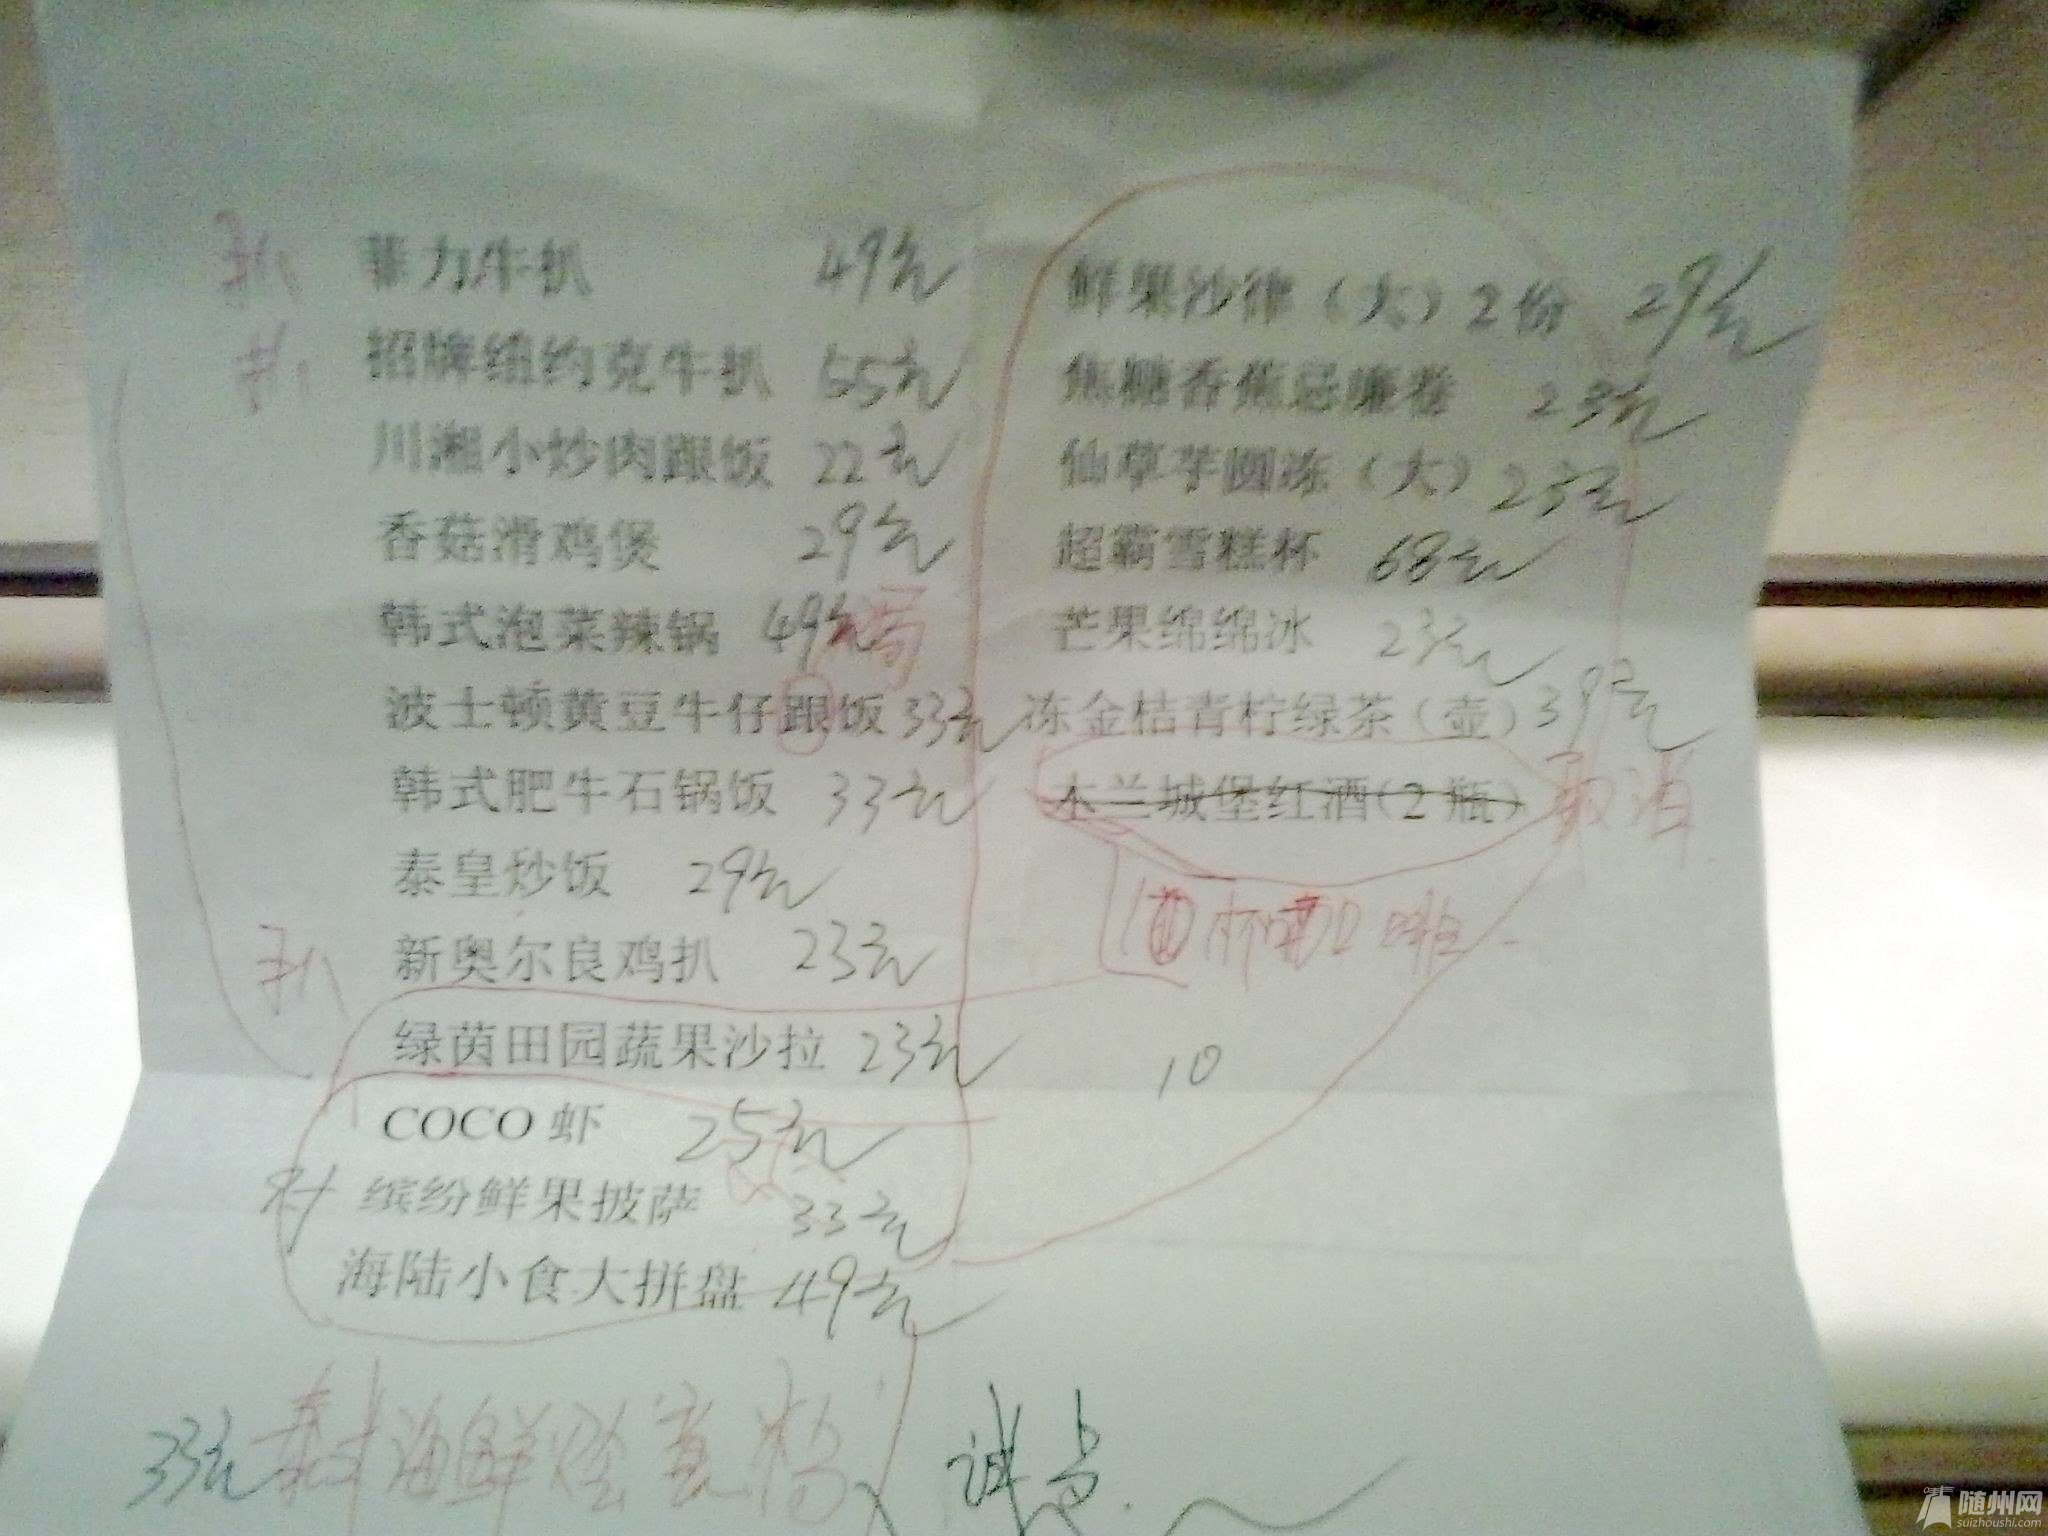 扒 菲力牛扒 49元
扒 招牌纽约克牛扒 55元
川湘小炒肉跟饭 22元
香菇滑鸡煲 29元
韩式泡菜辣锅 49元
波士顿黄豆牛仔跟饭 33元
韩式肥牛石锅饭 33元
泰皇炒饭 29元
扒 新奥尔良鸡扒 23元
绿茵田园蔬果沙拉 23元
COCO 虾 25元
缤纷鲜果披萨 33元
海陆小食大拼盘 49元
鲜果沙律（大）2份 29元
焦糖香蕉忌廉卷 23元
仙草芋圆冻（大）23元
超霸雪糕杯 68元
芒果绵绵冰 23元
冻金桔青柠绿茶（壶）39元
木兰城堡红酒(2 瓶) 取酒
10
33元 泰式海鲜烩意粉